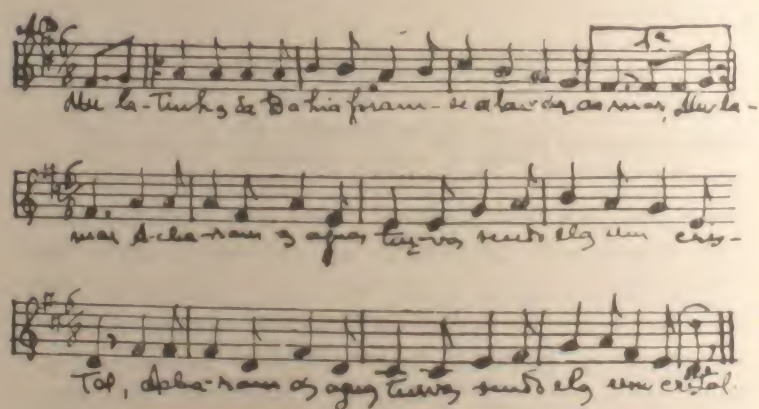 Mu la-tinhos da Bahia foram-se a lavar ao mar, Mu la-
mar Acharam as aguas turvas sendo elas um cris-
tal, Acharam as aguas turvas sendo elas um cristal.